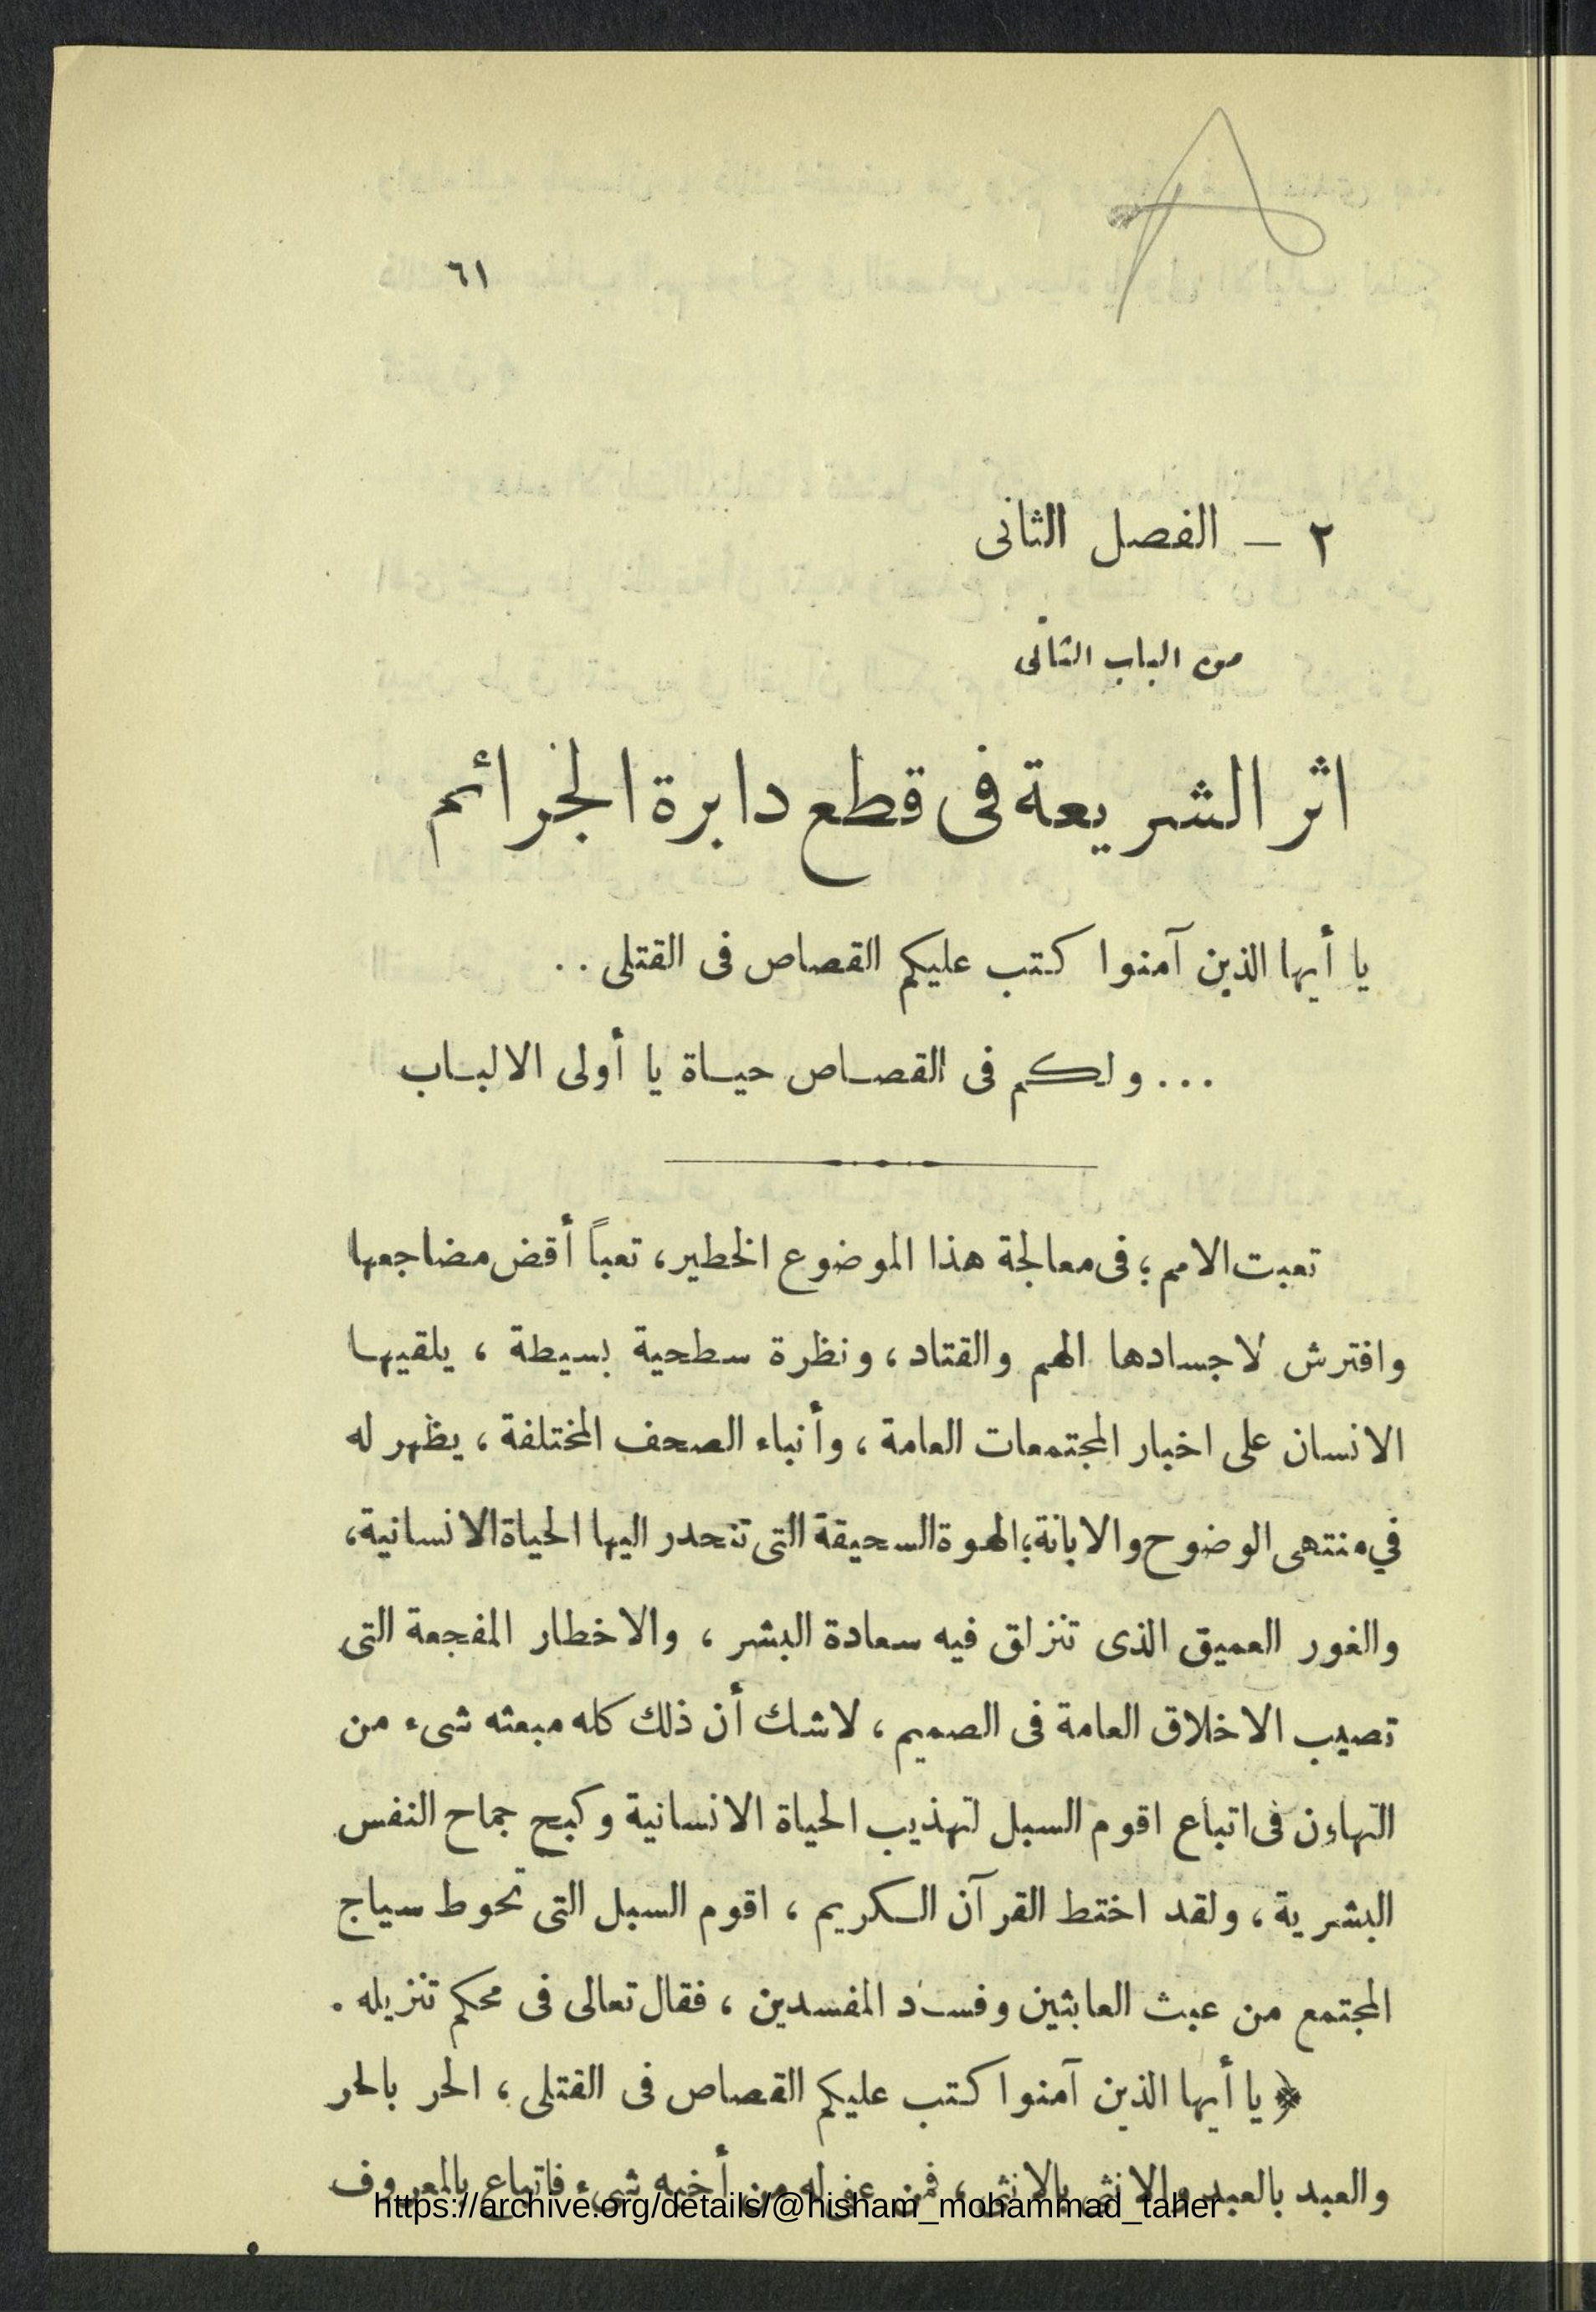 ٦١
٢ — الفصل الثانى
من الباب الثانى
اثر الشريعة فى قطع دابرة الجرائم
يا أيها الذين آمنوا كتب عليكم القصاص فى القتلى . .
... ولكم فى القصاص حياة يا أولى الالباب
تعبت الامم ؛ فى معالجة هذا الموضوع الخطير ، تعباً أقض مضاجعها
وافترش لاجسادها الهم والقتاد ، ونظرة سطحية بسيطة ، يلقيها
الانسان على اخبار المجتمعات العامة ، وأنباء الصحف المختلفة ، يظهر له
في منتهى الوضوح والابانة ؛ الهوة السحيقة التى تنحدر اليها الحياة الانسانية ،
والغور العميق الذى تنزلق فيه سعادة البشر ، والاخطار المفجعة التى
تصيب الاخلاق العامة فى الصميم ، لاشك أن ذلك كله مبعثه شىء من
التهاءن فى اتباع اقوم السبل لتهذيب الحياة الانسانية وكبح جماح النفس
البشرية ، ولقد اختط القرآن الكريم ، اقوم السبل التى تحوط سياج
المجتمع من عبث العابثين وفساد المفسدين ، فقال تعالى فى محكم تنزيله .
﴿ يا أيها الذين آمنوا كتب عليكم القصاص فى القتلى ، الحر بالحر
والعبد بالعبد والانثى بالانثى ، فمن عفى له من أخيه شىء فاتباع بالمعروف
https://archive.org/details/@hisham_mohammad_taher